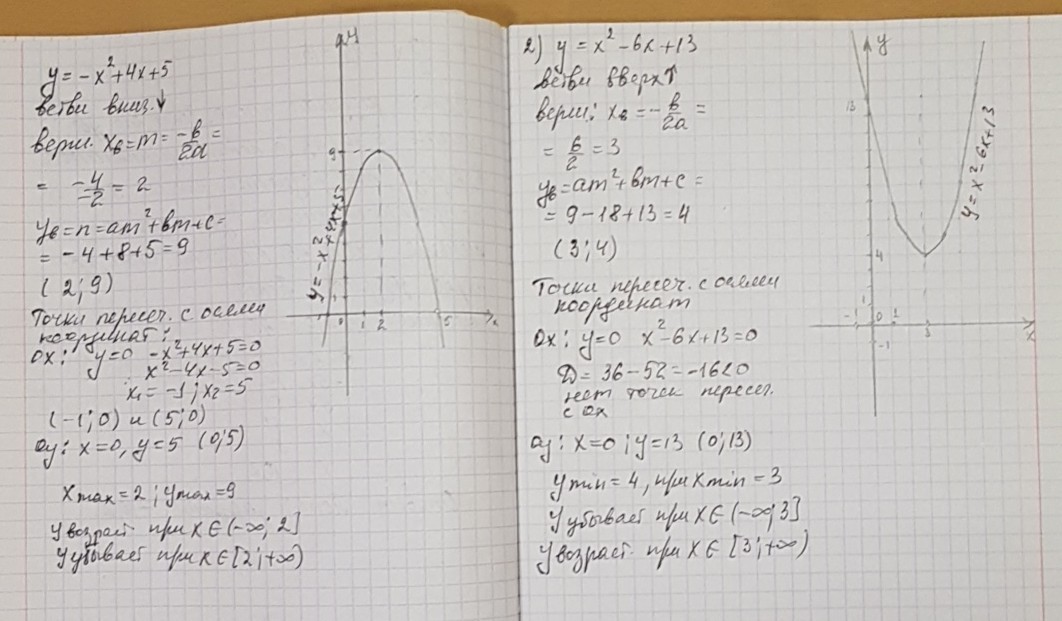 y = -x² + 4x + 5
ветви вниз ↓
верш. xв = m = -b/2a =
= -4/-2 = 2
yв = n = am² + bm + c =
= -4 + 8 + 5 = 9
(2; 9)
Точки пересеч. с осями
координат:
Ox: y=0 -x²+4x+5=0
x²-4x-5=0
x₁ = -1; x₂ = 5
(-1; 0) и (5; 0)
Oy: x=0, y=5 (0; 5)
xmax = 2; ymax = 9
y возраст при x ∈ (-∞; 2]
y убывает при x ∈ [2; +∞)
y
9
y = -x²+4x+5
1
0 1 2 5 x
2) y = x² - 6x + 13
ветви вверх ↑
верш: xв = -b/2a =
= 6/2 = 3
yв = am² + bm + c =
= 9 - 18 + 13 = 4
(3; 4)
Точки пересеч. с осями
координат
Ox: y=0 x²-6x+13=0
D = 36 - 52 = -16 < 0
нет точек пересеч.
с Ox
Oy: x=0; y=13 (0; 13)
ymin = 4, при xmin = 3
y убывает при x ∈ (-∞; 3]
y возраст. при x ∈ [3; +∞)
y
13
y = x² - 6x + 13
4
1
-1 0 1 3 x
-1